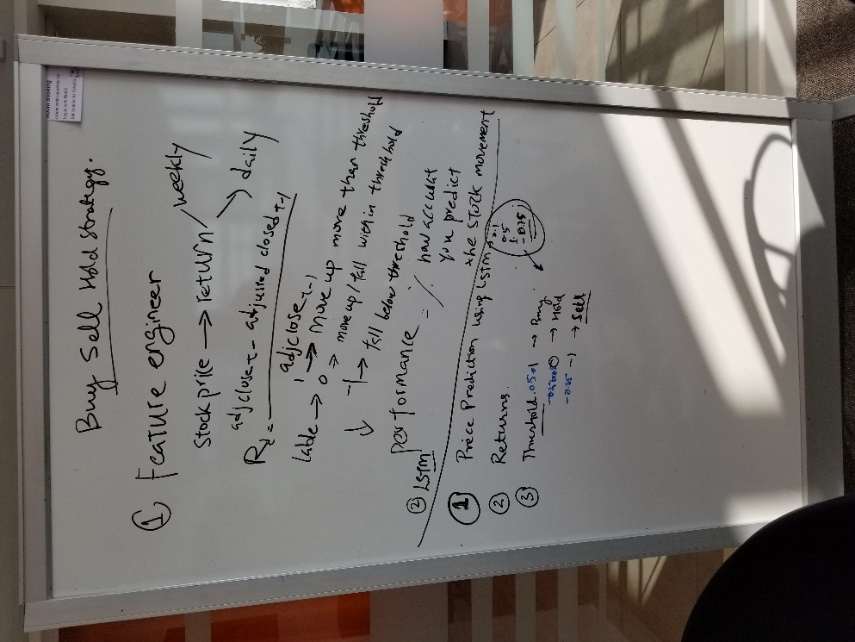 Buy Sell Hold strategy.
① Feature engineer
Stock price → return / weekly
→ daily
adjclose t - adjusted closed t-1
R_t =
adjclose t-1
Lable → 1 → Move up more than threshold
0 → move up / fall within threshhold
-1 → fall below threshold
Performance = % how accurat
you predict
the stock movement
② LSTM
① Priece Prediction using LSTM
② Returns.
0.5
-0.75
③ Threshold .05 → 1 → Buy
→ Hold
-1 → Sell